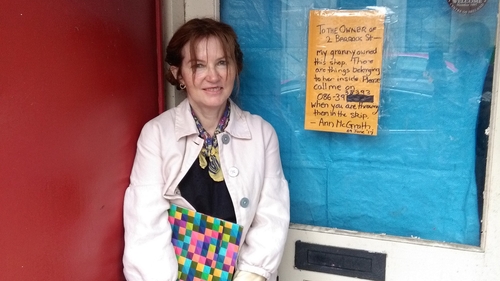 To THE OWNER OF
2 BARRACK St —
My granny owned
this shop. There
are things belonging
to her inside. Please
call me on
086-39
when you are throwing
them in the skip.
— Ann McGrath
WELCOME